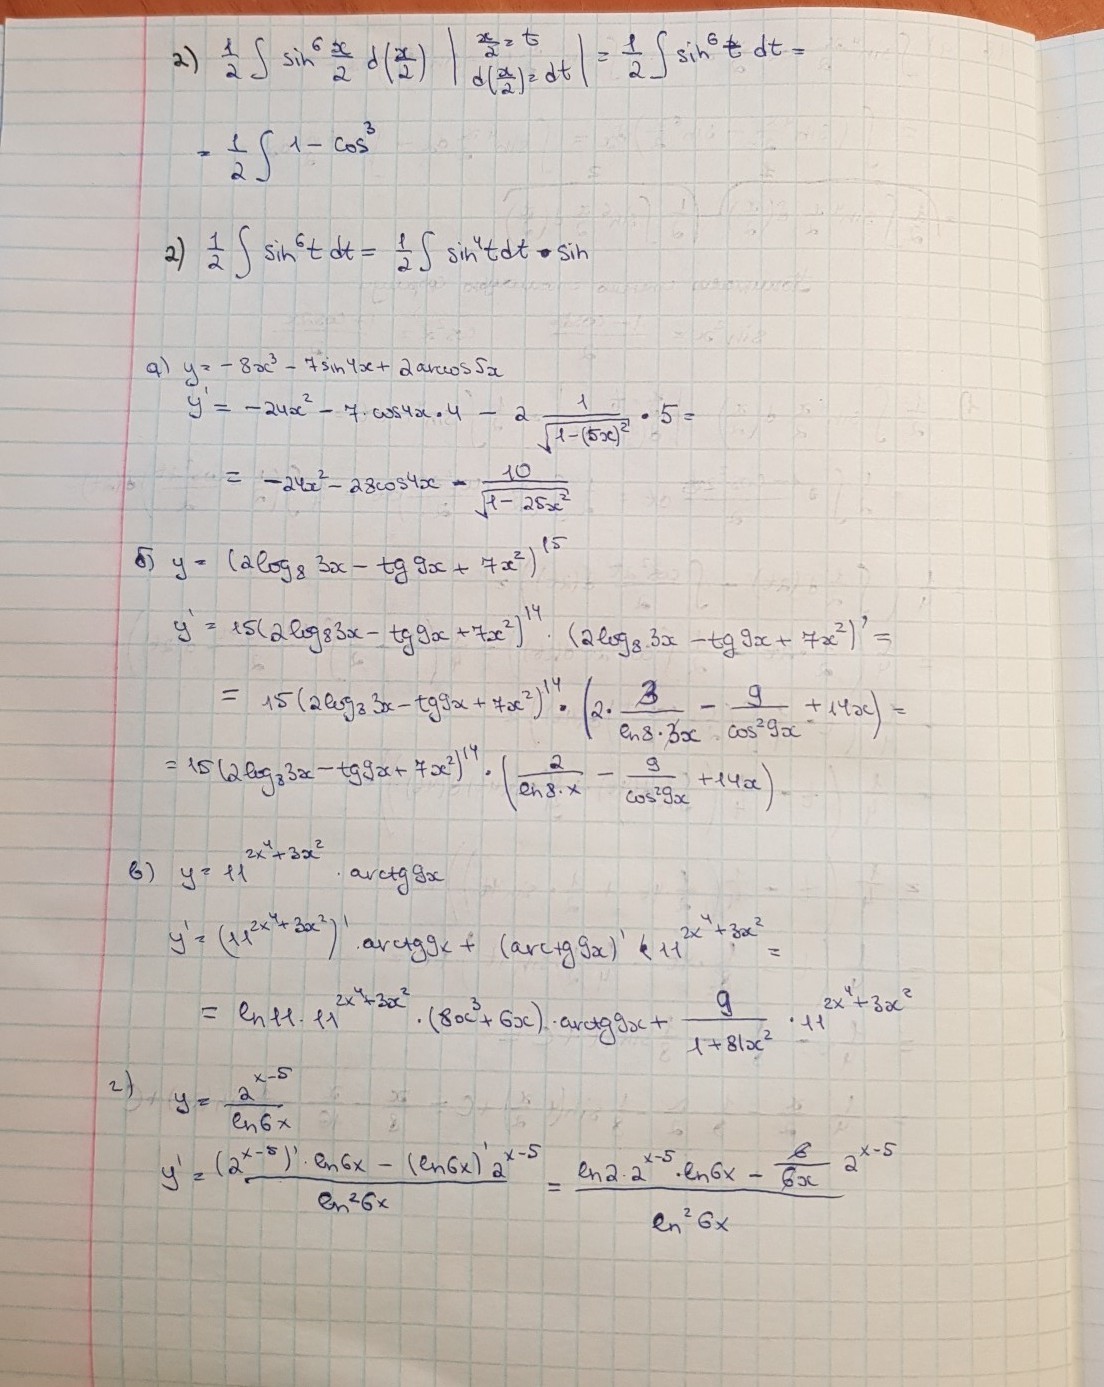 2) 1/2 ∫ sin⁶ x/2 d(x/2) | x/2 = t d(x/2) = dt | = 1/2 ∫ sin⁶ t dt =
= 1/2 ∫ 1 - cos³
2) 1/2 ∫ sin⁶t dt = 1/2 ∫ sin⁴t dt • sin
а) y = -8x³ - 7sin4x + 2arccos5x
y' = -24x² - 7·cos4x·4 - 2 1/√(1-(5x)²) · 5 =
= -24x² - 28cos4x - 10/√(1-25x²)
б) y = (2log₈ 3x - tg9x + 7x²)¹⁵
y' = 15(2log₈3x - tg9x + 7x²)¹⁴ · (2log₈3x - tg9x + 7x²)' =
= 15(2log₈3x - tg9x + 7x²)¹⁴ · (2· 3/(ln8·3x) - 9/cos²9x + 14x) =
= 15(2log₈3x - tg9x + 7x²)¹⁴ · (2/(ln8·x) - 9/cos²9x + 14x)
в) y = 11^(2x⁴+3x²) · arctg9x
y' = (11^(2x⁴+3x²))' · arctg9x + (arctg9x)' · 11^(2x⁴+3x²) =
= ln11·11^(2x⁴+3x²) · (8x³+6x) · arctg9x + 9/(1+81x²) · 11^(2x⁴+3x²)
г) y = 2^(x-5)/ln6x
y' = ((2^(x-5))' · ln6x - (ln6x)' 2^(x-5))/ln²6x = (ln2·2^(x-5)·ln6x - 6/6x 2^(x-5))/ln²6x